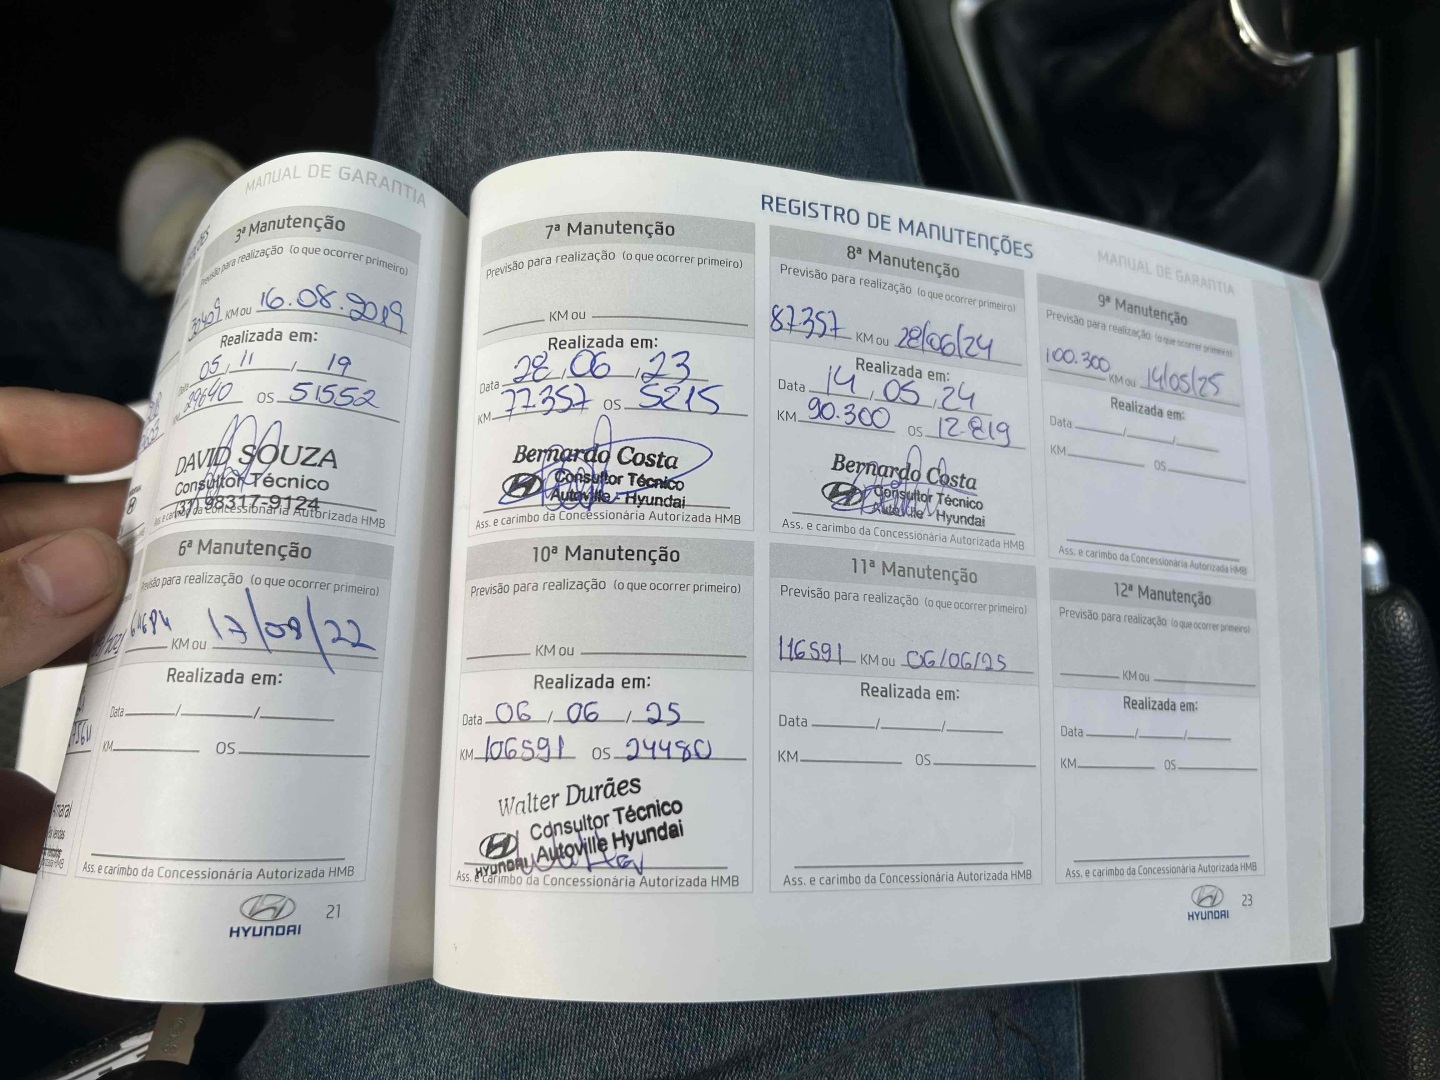 MANUAL DE GARANTIA
3ª Manutenção
Previsão para realização (o que ocorrer primeiro)
30409 KM ou 16.08.2019
Realizada em:
Data 05 / 11 / 19
KM 29640 OS 51552
DAVID SOUZA
Consultor Técnico
(37) 98317-9124
Ass. e carimbo da Concessionária Autorizada HMB
6ª Manutenção
Previsão para realização (o que ocorrer primeiro)
KM ou 17/08/22
Realizada em:
Data / /
KM OS
Ass. e carimbo da Concessionária Autorizada HMB
HYUNDAI
21
REGISTRO DE MANUTENÇÕES
MANUAL DE GARANTIA
7ª Manutenção
Previsão para realização (o que ocorrer primeiro)
KM ou
Realizada em:
Data 28 / 06 / 23
KM 77.357 OS 5215
Bernardo Costa
Consultor Técnico
Autoville - Hyundai
Ass. e carimbo da Concessionária Autorizada HMB
8ª Manutenção
Previsão para realização (o que ocorrer primeiro)
87357 KM ou 28/06/24
Realizada em:
Data 14 / 05 / 24
KM 90.300 OS 12.819
Bernardo Costa
Consultor Técnico
Autoville - Hyundai
Ass. e carimbo da Concessionária Autorizada HMB
9ª Manutenção
Previsão para realização (o que ocorrer primeiro)
100.300 KM ou 14/05/25
Realizada em:
Data / /
KM OS
Ass. e carimbo da Concessionária Autorizada HMB
10ª Manutenção
Previsão para realização (o que ocorrer primeiro)
KM ou
Realizada em:
Data 06 / 06 / 25
KM 106591 OS 24480
Walter Durães
Consultor Técnico
HYUNDAI Autoville Hyundai
Ass. e carimbo da Concessionária Autorizada HMB
11ª Manutenção
Previsão para realização (o que ocorrer primeiro)
116591 KM ou 06/06/25
Realizada em:
Data / /
KM OS
Ass. e carimbo da Concessionária Autorizada HMB
12ª Manutenção
Previsão para realização (o que ocorrer primeiro)
KM ou
Realizada em:
Data / /
KM OS
Ass. e carimbo da Concessionária Autorizada HMB
HYUNDAI
23